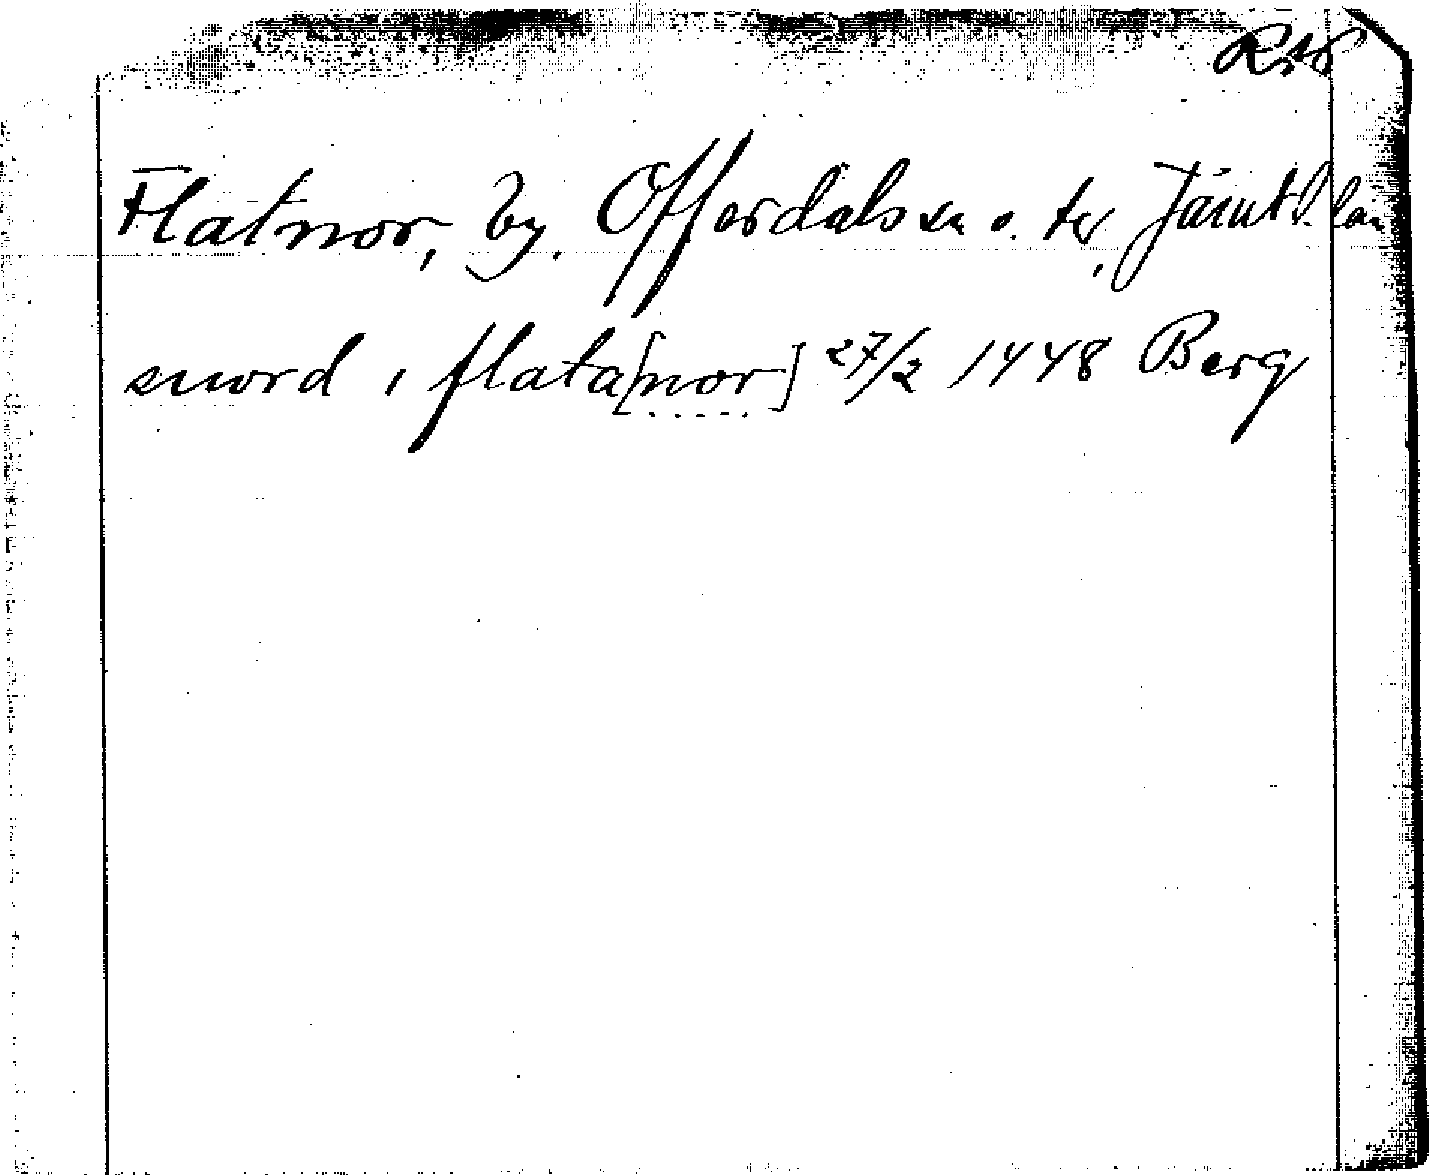 Flatnor, by. Offerdals sn o. ts, Jämtl. län
snord i flata[mor] 27/2 1448 Berg